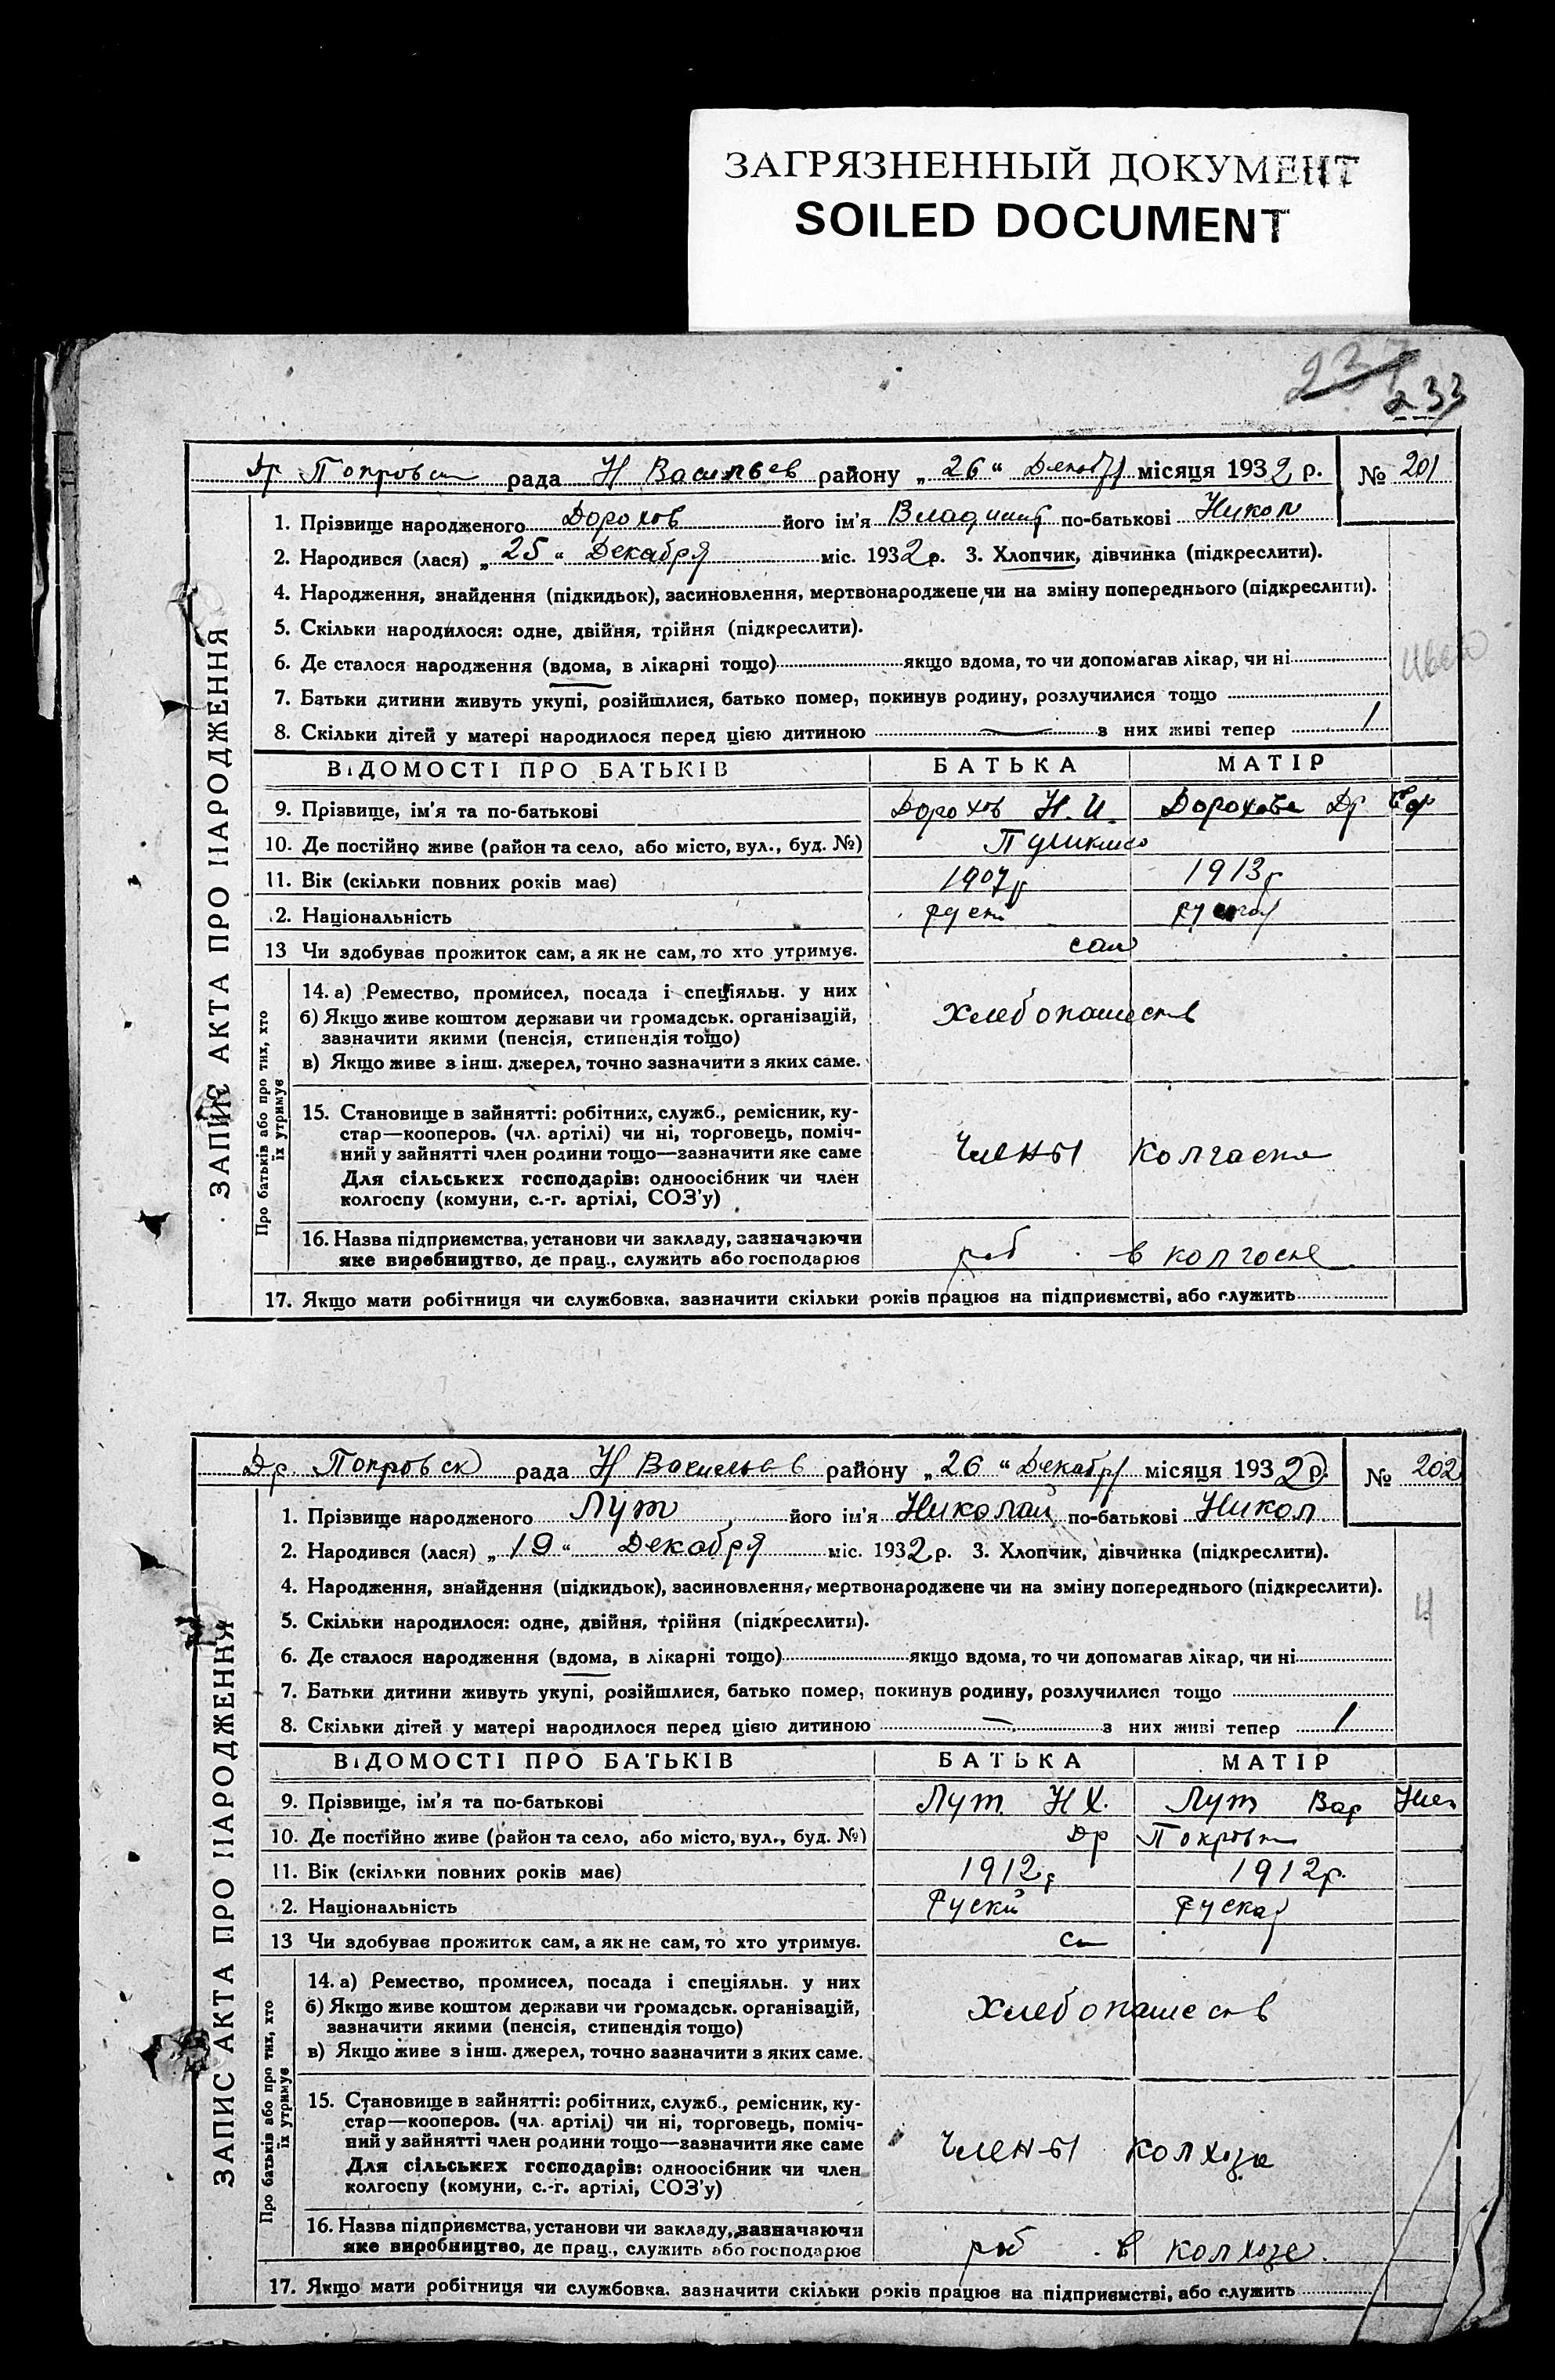 ЗАГРЯЗНЕННЫЙ ДОКУМЕНТ
SOILED DOCUMENT
237
233
Др Покровск рада Н Васильев району „ 26 “ Декабря місяця 1932 р. № 201
1. Прізвище народженого Дорохов його ім'я Владимир по-батькові Никол
2. Народився (лася) „ 25 “ Декабря міс. 1932 р. 3. Хлопчик, дівчинка (підкреслити).
4. Народження, знайдення (підкидьок), засиновлення, мертвонароджене чи на зміну попереднього (підкреслити).
5. Скільки народилося: одне, двійня, трійня (підкреслити).
6. Де сталося народження (вдома, в лікарні тощо) якщо вдома, то чи допомагав лікар, чи ні
7. Батьки дитини живуть укупі, розійшлися, батько помер, покинув родину, розлучилися тощо
8. Скільки дітей у матері народилося перед цією дитиною — з них живі тепер 1
ЗАПИС АКТА ПРО НАРОДЖЕННЯ
ВІДОМОСТІ ПРО БАТЬКІВ БАТЬКА МАТІР
9. Прізвище, ім'я та по-батькові Дорохов Н. И. Дорохова Др Еф
10. Де постійно живе (район та село, або місто, вул., буд. №)
11. Вік (скільки повних років має) 1907 г 1913 г
2. Національність руски руская
13 Чи здобуває прожиток сам, а як не сам, то хто утримує. сам
Про батьків або про тих, хто їх утримує
14. а) Ремество, промисел, посада і спеціяльн. у них
б) Якщо живе коштом держави чи громадськ. організацій,
зазначити якими (пенсія, стипендія тощо)
в) Якщо живе з інш. джерел, точно зазначити з яких саме.
Хлебопашеств
15. Становище в зайнятті: робітник, служб., ремісник, ку-
стар—кооперов. (чл. артілі) чи ні, торговець, поміч-
ний у зайнятті член родини тощо—зазначити яке саме
Для сільських господарів: одноосібник чи член
колгоспу (комуни, с.-г. артілі, СОЗ'у)
Члены Колгаспа
16. Назва підприємства, установи чи закладу, зазначаючи
яке виробництво, де прац., служить або господарює
роб в колгоспе
17. Якщо мати робітниця чи службовка, зазначити скільки років працює на підприємстві, або служить
Др. Покровск рада Н Васильев району „ 26 “ Декабря місяця 1932 р. № 202
1. Прізвище народженого Лут його ім'я Николай по-батькові Никол
2. Народився (лася) „ 19 “ Декабря міс. 1932 р. 3. Хлопчик, дівчинка (підкреслити).
4. Народження, знайдення (підкидьок), засиновлення, мертвонароджене чи на зміну попереднього (підкреслити).
5. Скільки народилося: одне, двійня, трійня (підкреслити).
6. Де сталося народження (вдома, в лікарні тощо) якщо вдома, то чи допомагав лікар, чи ні
7. Батьки дитини живуть укупі, розійшлися, батько помер, покинув родину, розлучилися тощо
8. Скільки дітей у матері народилося перед цією дитиною — з них живі тепер 1
ЗАПИС АКТА ПРО НАРОДЖЕННЯ
ВІДОМОСТІ ПРО БАТЬКІВ БАТЬКА МАТІР
9. Прізвище, ім'я та по-батькові Лут Н Х. Лут Вар
10. Де постійно живе (район та село, або місто, вул., буд. №) Др Покровк
11. Вік (скільки повних років має) 1912 г 1912 г.
2. Національність Руский руская
13 Чи здобуває прожиток сам, а як не сам, то хто утримує. см
Про батьків або про тих, хто їх утримує
14. а) Ремество, промисел, посада і спеціяльн. у них
б) Якщо живе коштом держави чи громадськ. організацій,
зазначити якими (пенсія, стипендія тощо)
в) Якщо живе з інш. джерел, точно зазначити з яких саме.
Хлебопашеств
15. Становище в зайнятті: робітник, служб., ремісник, ку-
стар—кооперов. (чл. артілі) чи ні, торговець, поміч-
ний у зайнятті член родини тощо—зазначити яке саме
Для сільських господарів: одноосібник чи член
колгоспу (комуни, с.-г. артілі, СОЗ'у)
Члены колхоза
16. Назва підприємства, установи чи закладу, зазначаючи
яке виробництво, де прац., служить або господарює
роб в колхозе
17. Якщо мати робітниця чи службовка, зазначити скільки років працює на підприємстві, або служить